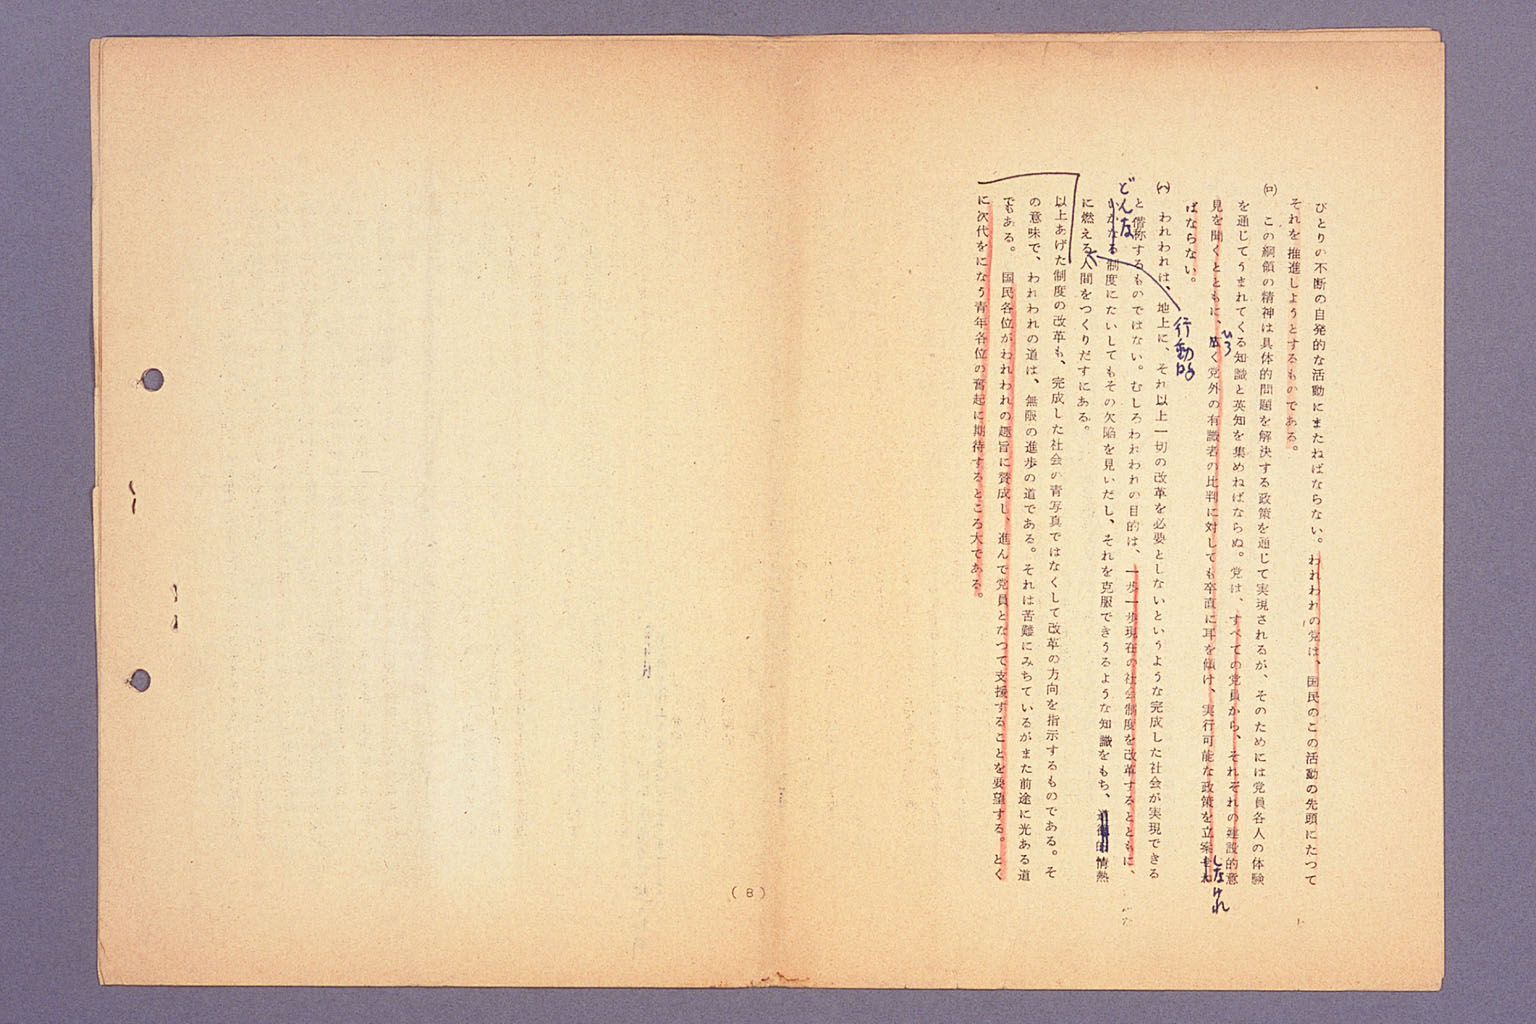 ひとりの不断の自発的な活動にまたねばならない。われわれの党は、国民のこの活動の先頭にたつて
それを推進しようとするものである。
(ロ) この綱領の精神は具体的問題を解決する政策を通じて実現されるが、そのためには党員各人の体験
を通じてうまれてくる知識と英知を集めねばならぬ。党は、すべての党員から、それぞれの建設的意
見を聞くとともに、広く党外の有識者の比判に対しても卒直に耳を傾け、実行可能な政策を立案せね
ひろ
しなけれ
ばならない。
行動的
(ハ) われわれは、地上に、それ以上一切の改革を必要としないというような完成した社会が実現できる
と僭称するものではない。むしろわれわれの目的は、一歩一歩現在の社会制度を改革するとともに、
どんな
いかなる制度にたいしてもその欠陥を見いだし、それを克服できうるような知識をもち、道徳的情熱
に燃える人間をつくりだすにある。
以上あげた制度の改革も、完成した社会の青写真ではなくして改革の方向を指示するものである。そ
の意味で、われわれの道は、無限の進歩の道である。それは苦難にみちているがまた前途に光ある道
でもある。国民各位がわれわれの趣旨に賛成し、進んで党員となつて支援することを要望する。とく
に次代をになう青年各位の奮起に期待するところ大である。
(8)